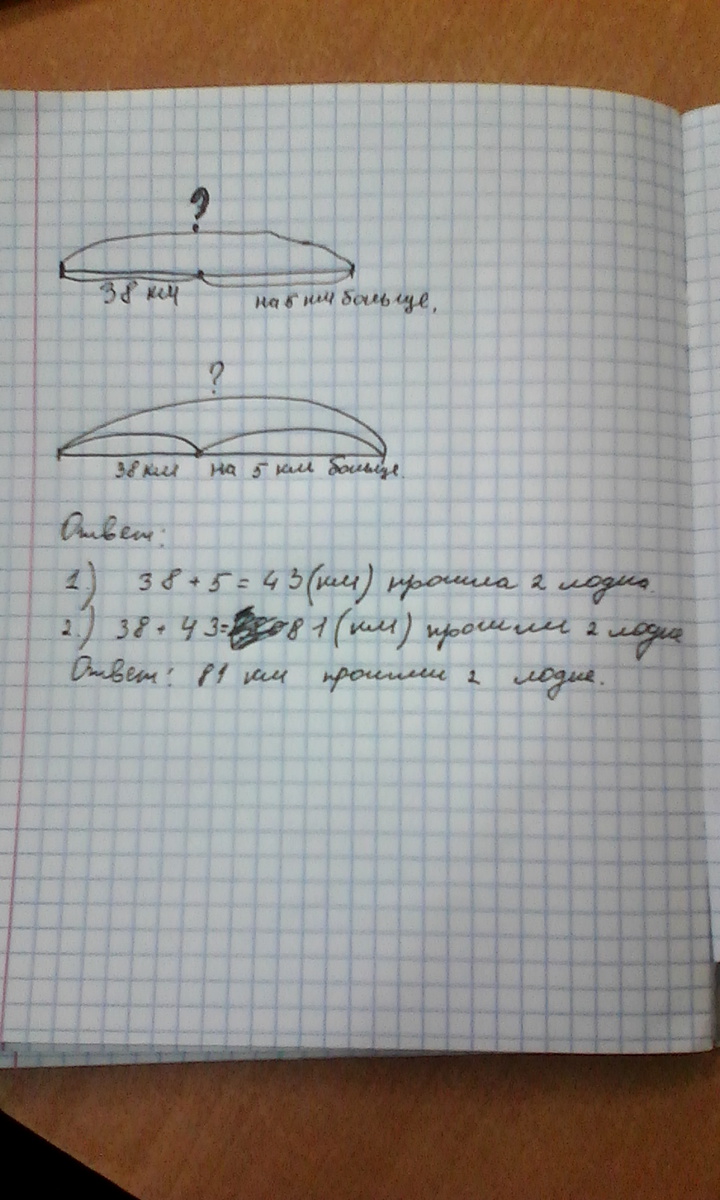 ?
38 км на 5 км больше.
?
38 км на 5 км больше.
Ответ:
1) 38 + 5 = 43 (км) прошла 2 лодка.
2.) 38 + 43 = 81 (км) прошли 2 лодке
Ответ: 81 км прошли 2 лодке.